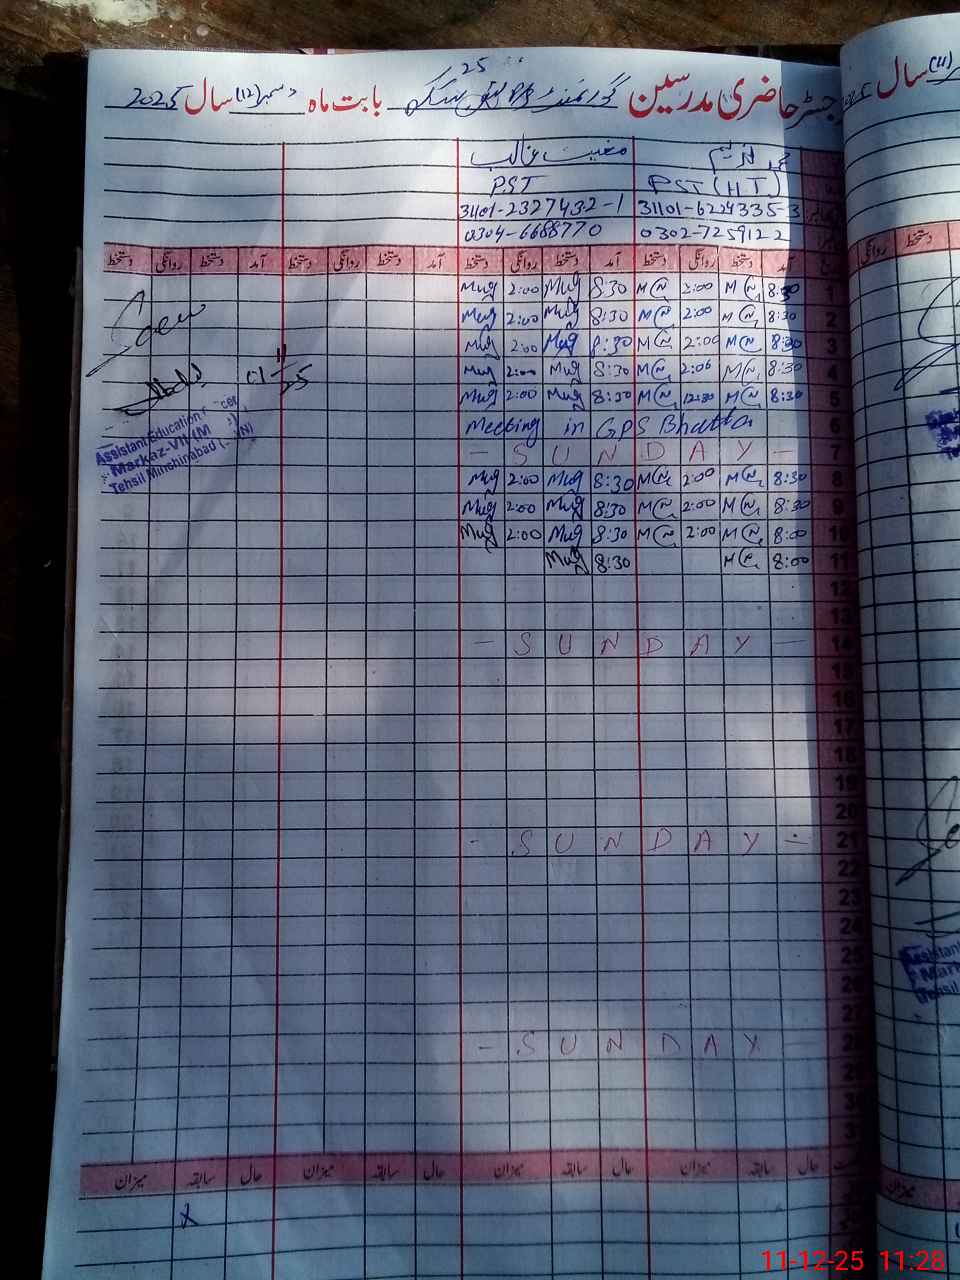 رجسٹر حاضری مدرسین گورنمنٹ بابت ماہ دسمبر (12) سال 2025
25
سال (11)
محمد ندیم مغیث غالب
PST (H.T) PST
31101-6224335-3 31101-2327432-1
0302-7259122 0304-6688770
آمد دستخط روانگی دستخط آمد دستخط روانگی دستخط آمد دستخط روانگی دستخط آمد دستخط روانگی دستخط
1 8:30 2:00 8:30 Mug 2:00 Mug
2 8:30 2:00 8:30 Mug 2:00 Mug
3 8:30 2:00 8:30 Mug 2:00 Mug
4 8:30 2:00 8:30 Mug 2:00 Mug
5 8:30 12:30 8:30 Mug 2:00 Mug
6 Meeting in GPS Bhatta
7 - S U N D A Y -
8 8:30 2:00 8:30 Mug 2:00 Mug
9 8:30 2:00 8:30 Mug 2:00 Mug
10 8:00 2:00 8:30 Mug 2:00 Mug
11 8:00 8:30 Mug
12
13
14 - S U N D A Y -
15
16
17
18
19
20
21 - S U N D A Y -
22
23
24
25
26
27
28 - S U N D A Y -
29
30
حال سابقہ میزان حال سابقہ میزان حال سابقہ میزان حال سابقہ میزان
Assistant Education
Markaz-VII (M
Tehsil Minchinabad
11-12-25 11:28